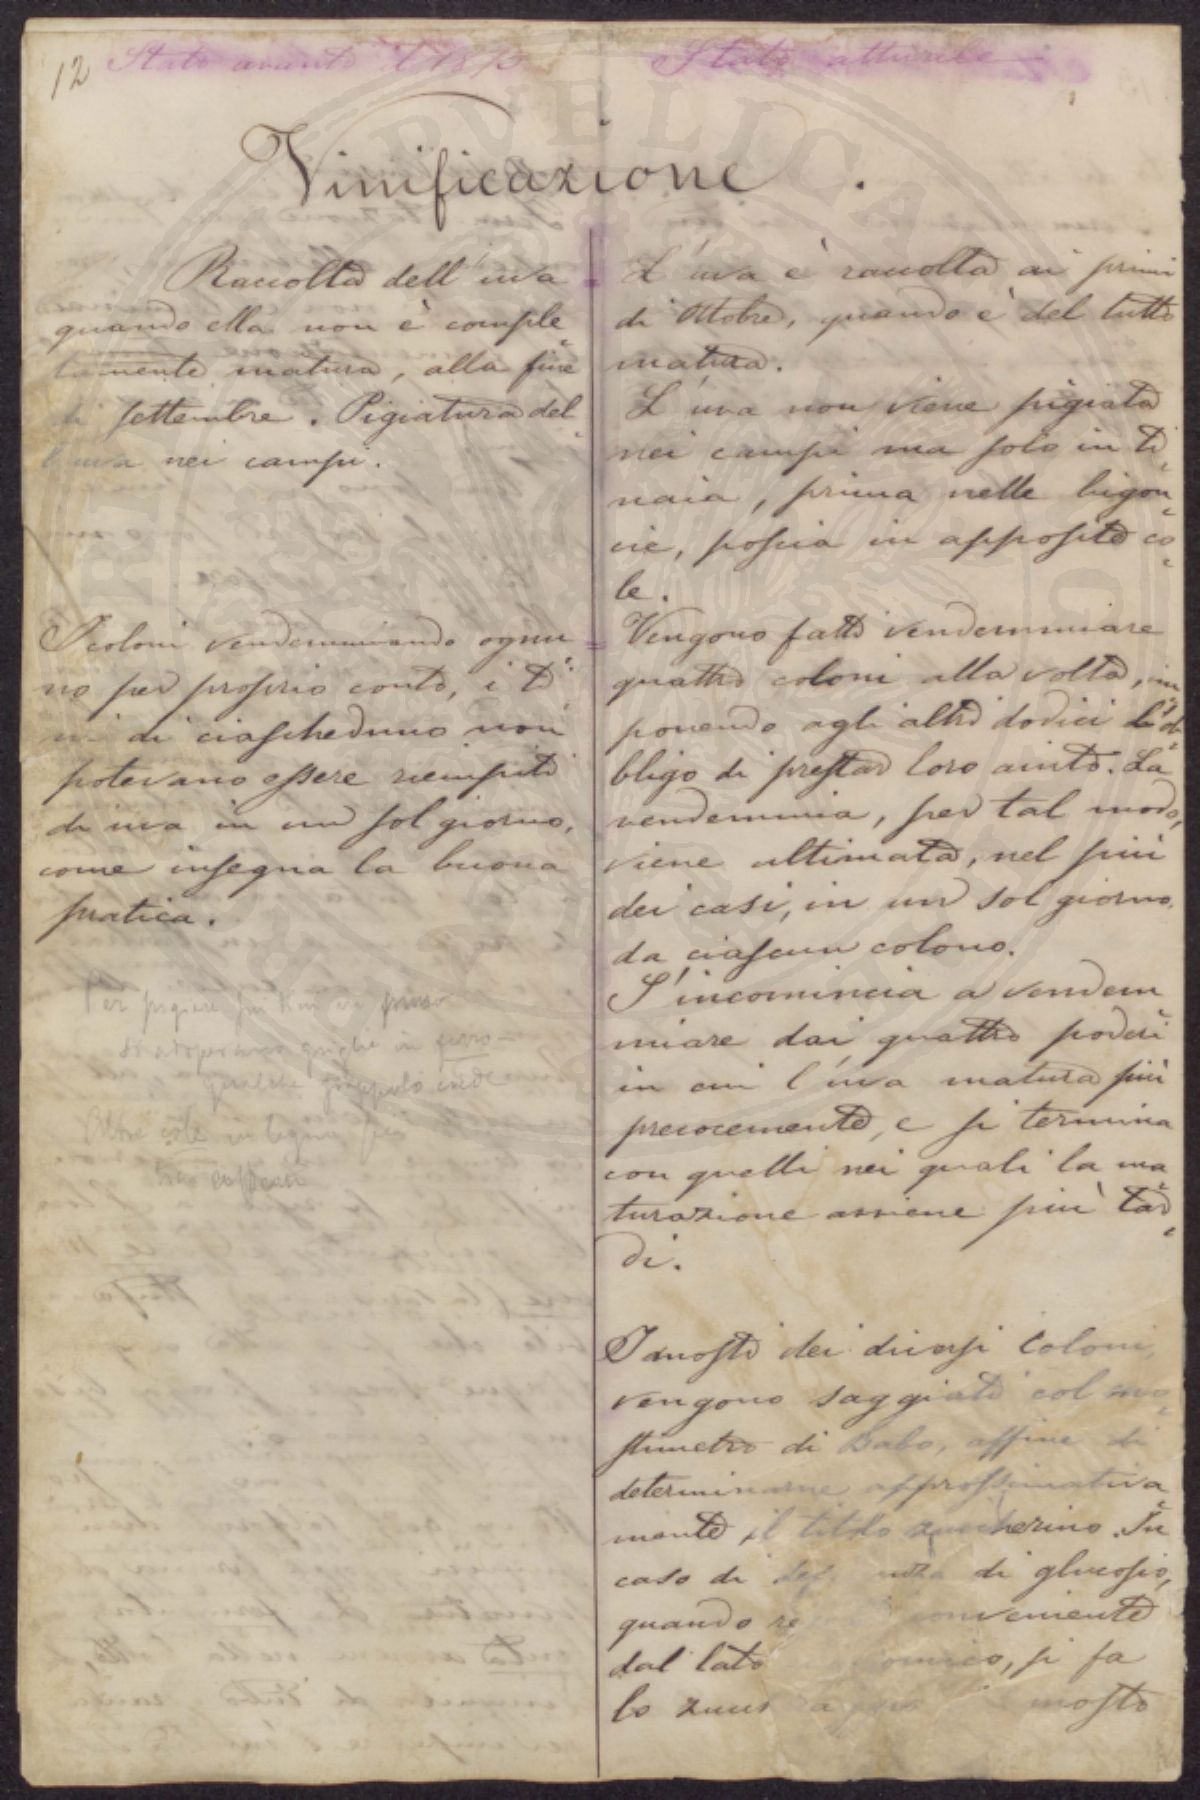 12
Stato avanti il 1873
Stato attuale
Vinificazione.
Raccolta dell'uva
quando ella non è comple
tamente matura, alla fine
di settembre. Pigiatura del
l'uva nei campi.
I coloni vendemmiando ognu
no per proprio conto, i ti
ni di ciascheduno non
potevano essere riempiti
di uva in un sol giorno,
come insegna la buona
pratica.
Per pigiare
in ferro
qualche grappolo
L'uva è raccolta ai primi
di Ottobre, quando è del tutto
matura.
L'uva non viene pigiata
nei campi ma solo in ti
naia, prima nelle bigon
cie, poscia in apposite co
le.
Vengono fatti vendemmiare
quattro coloni alla volta, im
ponendo agli altri dodici l'ob
bligo di prestar loro aiuto. La
vendemmia, per tal modo,
viene ultimata, nel più
dei casi, in un sol giorno,
da ciascun colono.
S'incomincia a vendem
miare dai quattro poderi
in cui l'uva matura più
precocemente, e si termina
con quelli nei quali la ma
turazione avviene più tar
di.
I mosti dei diversi coloni,
vengono saggiati col mo
stimetro di Babo, affine di
determinarne approssimativa
mente il titolo zuccherino. In
caso di di glucosio,
quando conveniente
dal lato si fa
lo mosto